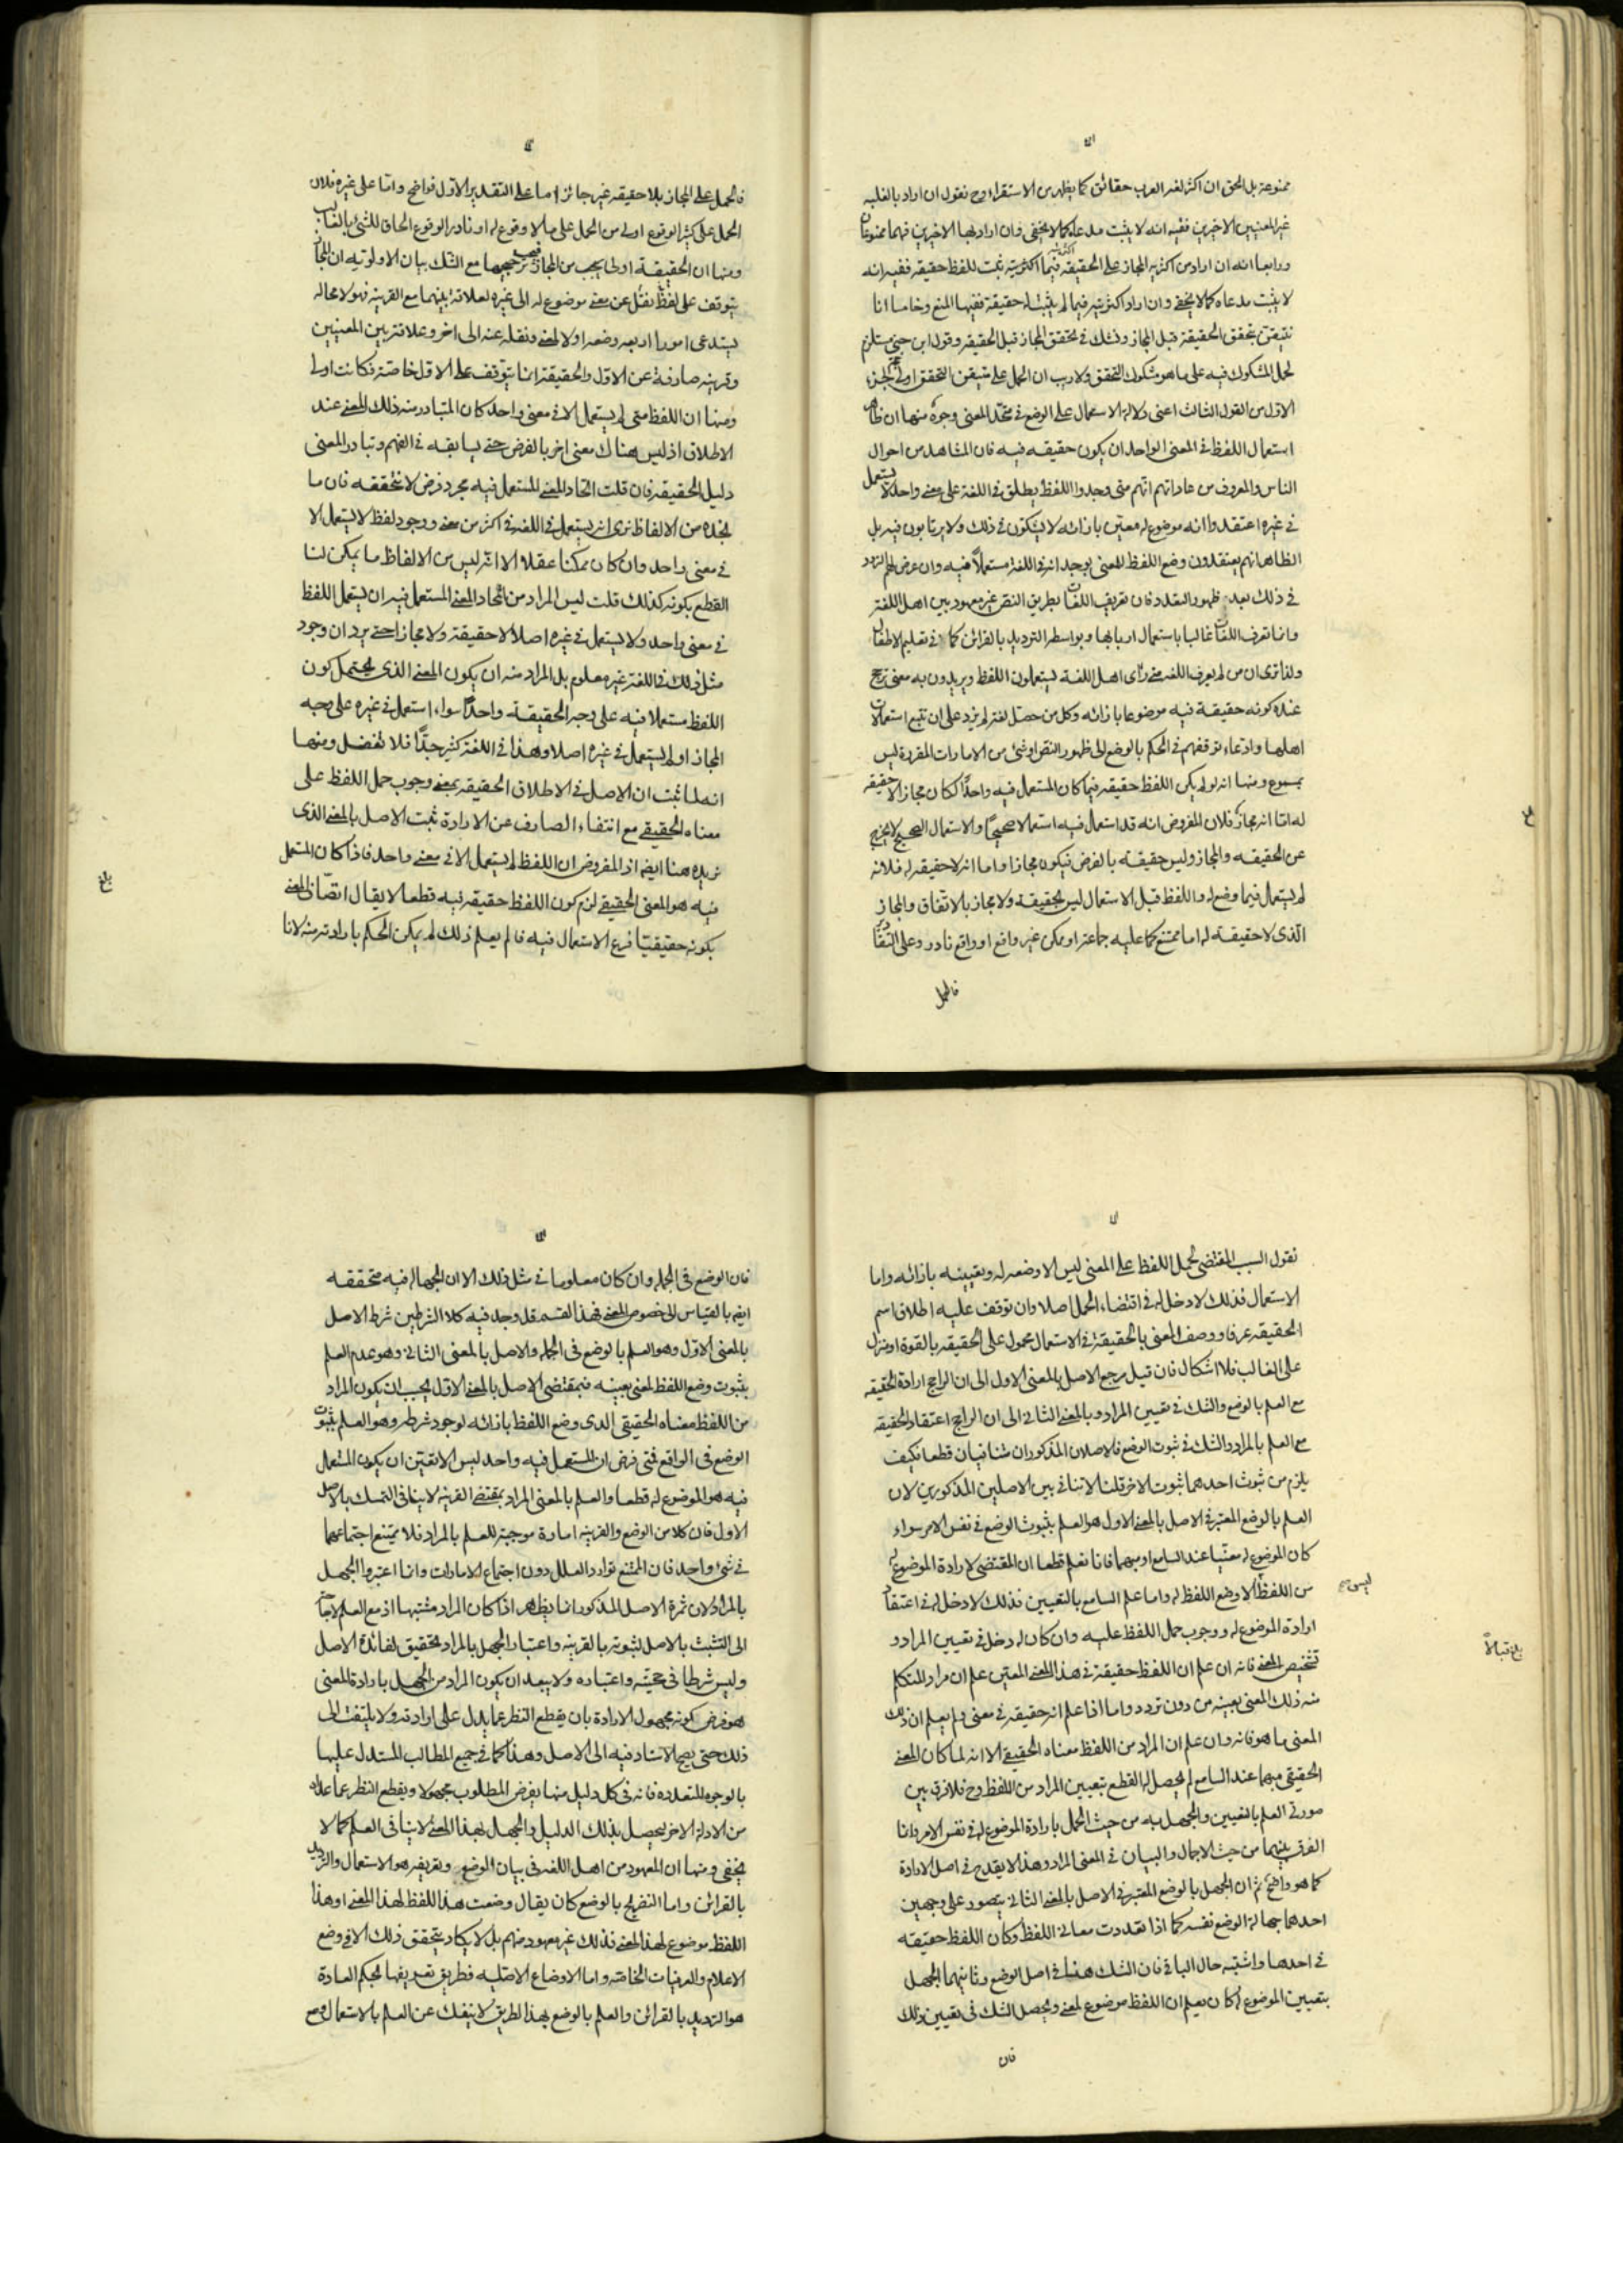 ممنوعة بل الحق ان اكثر لغة العرب حقائق كما يظهر من الاستقراء وح نقول ان اراد بالغلبه
غير المعنيين الاخيرين ففيه انه لا يثبت مدعاه كما لا يخفى وان اراد بها الاخيرين فهما ممنوعان
ورابعا انه ان اراد من اكثريه المجاز على الحقيقه اكثريته فيما ثبت للفظ حقيقه ففيه انه
لا يثبت مدعاه كما لا يخفى وان اراد اكثريته فيما لم يثبت له حقيقة ففيها المنع وخامسا انا
نتيقن بتحقق الحقيقة قبل المجاز ونشك في تحقق المجاز قبل الحقيقه وقول ابن جني مستلزم
لحمل المشكوك فيه على ما هو مشكوك التحقق ولا ريب ان الحمل على متيقن التحقق اولى الجزء
الاول من القول الثالث اعنى دلالة الاستعمال على الوضع في متحد المعنى وجوه منها ان ظاهر
استعمال اللفظ في المعنى الواحد ان يكون حقيقه فيه فان المشاهد من احوال
الناس والمعروف من عاداتهم انهم متى وجدوا اللفظ يطلق في اللغة على معنى واحد لا يستعمل
في غيره اعتقدوا انه موضوع له معين بازائه لا يشكون في ذلك ولا يرتابون فيه بل
الظاهر انهم يعتقدون وضع اللفظ للمعنى بوجدانه في اللغة مستعملا فيه وان عرض لهم التردد
في ذلك بعد ظهور التعدد فان تعريف اللغات بطريق النص غير معهود بين اهل اللغة
وانما تعرف اللغات غالبا باستعمال اربابها وبواسطه الترديد بالقرائن كما في تعليم الاطفال
ولذا ترى ان من لم يعرف اللغه متى رأى اهل اللغة يستعملون اللفظ ويريدون به معنى ترجح
عنده كونه حقيقة فيه موضوعا بازائه وكل من حصل لغة لم يزد على ان تتبع استعمالات
اهلها وادعاء توقفهم في الحكم بالوضع الى ظهور النص او شئ من الامارات المقررة ليس
بمسموع ومنها انه لو لم يكن اللفظ حقيقه فيما كان المستعمل فيه واحدا لكان مجازا لا حقيقه
له اما انه مجاز فلان المفروض انه قد استعمل فيه استعمالا صحيحا والاستعمال الصحيح لا يخرج
عن الحقيقه والمجاز وليس حقيقة بالفرض فيكون مجازا واما انه لا حقيقه له فلانه
لم يستعمل فيما وضع له واللفظ قبل الاستعمال ليس بحقيقة ولا مجاز بالاتفاق والمجاز
الذى لا حقيقة له اما ممتنع كما عليه جماعة او ممكن غير واقع او واقع نادر وعلى التقادير
فالحمل
فالحمل على المجاز بلا حقيقه غير جائز اما على التقدير الاول فواضح واما على غيره فلان
الحمل على كثير الوقوع اولى من الحمل على ما لا وقوع له او نادر الوقوع الحاق للشئ بالغالب
ومنها ان الحقيقة اولى من المجاز فيجب ترجيحها مع الشك بيان الاولوية ان المجاز
يتوقف على لفظ نقل عن معنى موضوع له الى غيره لعلاقة بينهما مع القرينه فهو لا محاله
يستدعى امورا اربعه وضعه اولا لمعنى ونقله عنه الى اخر وعلاقة بين المعنيين
وقرينه صارفة عن الاول والحقيقة انما يتوقف على الاول خاصة فكانت اولى
ومنها ان اللفظ متى لم يستعمل الا في معنى واحد كان المتبادر منه ذلك المعنى عند
الاطلاق اذ ليس هناك معنى اخر بالفرض حتى يسابقه في الفهم وتبادر المعنى
دليل الحقيقه فان قلت اتحاد المعنى المستعمل فيه مجرد فرض لا نتحققه فان ما
نجده من الالفاظ نرى انه يستعمل في اللغة في اكثر من معنى ووجود لفظ لا يستعمل الا
في معنى واحد وان كان ممكنا عقلا الا انه ليس من الالفاظ ما يمكن لنا
القطع بكونه كذلك قلت ليس المراد من اتحاد المعنى المستعمل فيه ان يستعمل اللفظ
في معنى واحد ولا يستعمل في غيره اصلا لا حقيقة ولا مجازا حتى يرد ان وجود
مثل ذلك في اللغة غير معلوم بل المراد منه ان يكون المعنى الذى يحتمل كون
اللفظ مستعملا فيه على وجه الحقيقة واحدا سواء استعمل في غيره على وجه
المجاز او لم يستعمل في غيره اصلا وهذا في اللغة كثير جدا فلا تغفل ومنها
انه لما ثبت ان الاصل في الاطلاق الحقيقه بمعنى وجوب حمل اللفظ على
معناه الحقيقي مع انتفاء الصارف عن الارادة ثبت الاصل بالمعنى الذى
نريده هنا ايضا اذ المفروض ان اللفظ لم يستعمل الا في معنى واحد فاذا كان المستعمل
فيه هو المعنى الحقيقي لزم كون اللفظ حقيقه فيه قطعا لا يقال اتصاف المعنى
بكونه حقيقيا فرع الاستعمال فيه فما لم يعلم ذلك لم يمكن الحكم بارادته منه لانا
نقول السبب المقتضى لحمل اللفظ على المعنى ليس الا وضعه له وتعيينه بازائه واما
الاستعمال فذلك لا دخل له في اقتضاء الحمل اصلا وان توقف عليه اطلاق اسم
الحقيقه عرفا ووصف المعنى بالحقيقة في الاستعمال محمول على الحقيقه بالقوة او منزل
على الغالب فلا اشكال فان قيل مرجع الاصل بالمعنى الاول الى ان الراجح ارادة الحقيقه
مع العلم بالوضع والشك في تعيين المراد وبالمعنى الثانى الى ان الراجح اعتقاد الحقيقه
مع العلم بالمراد والشك في ثبوت الوضع فالاصلان المذكوران متنافيان قطعا فكيف
يلزم من ثبوت احدهما ثبوت الاخر قلنا لا تنافى بين الاصلين المذكورين لان
العلم بالوضع المعتبر في الاصل بالمعنى الاول هو العلم بثبوت الوضع في نفس الامر سواء
كان الموضوع له معينا عند السامع او مبهما فانا نعلم قطعا ان المقتضى لارادة الموضوع له
من اللفظ ليس الا وضع اللفظ له واما علم السامع بالتعيين فذلك لا دخل له في اعتقاد
ارادة الموضوع له ووجوب حمل اللفظ عليه وان كان له دخل في تعيين المراد و
تشخيص المعنى فانه ان علم ان اللفظ حقيقة في هذا المعنى المعين علم ان مراد المتكلم
منه ذلك المعنى بعينه من دون تردد واما اذا علم انه حقيقه في معنى ولم يعلم ان ذلك
المعنى ما هو فانه وان علم ان المراد من اللفظ معناه الحقيقي الا انه لما كان المعنى
الحقيقي مبهما عند السامع لم يحصل له القطع بتعيين المراد من اللفظ وح فلا فرق بين
صورتى العلم بالتعيين والجهل به من حيث الحمل بارادة الموضوع له في نفس الامر وانما
الفرق بينهما من حيث الاجمال والبيان في المعنى المراد وهذا لا يقدح في اصل الارادة
كما هو واضح ثم ان الجهل بالوضع المعتبر في الاصل بالمعنى الثانى يتصور على وجهين
احدهما جهالة الوضع نفسه كما اذا تعددت معانى اللفظ وكان اللفظ حقيقه
في احدها واشتبه حال الباقى فان الشك هنا في اصل الوضع وثانيهما الجهل
بتعيين الموضوع له كان يعلم ان اللفظ موضوع لمعنى ويحصل الشك في تعيين ذلك
فان
فان الوضع في الجمله وان كان معلوما في مثل ذلك الا ان الجهاله فيه متحققه
ايضا بالقياس الى خصوص المعنى فهذا القسم قد وجد فيه كلا الشرطين شرط الاصل
بالمعنى الاول وهو العلم بالوضع في الجمله والاصل بالمعنى الثانى وهو عدم العلم
بثبوت وضع اللفظ لمعنى بعينه فبمقتضى الاصل بالمعنى الاول يجب ان يكون المراد
من اللفظ معناه الحقيقي الذى وضع اللفظ بازائه لوجود شرطه وهو العلم بثبوت
الوضع في الواقع فمتى فرض ان المستعمل فيه واحد ليس الا تعين ان يكون المستعمل
فيه هو الموضوع له قطعا والعلم بالمعنى المراد بمقتضى القرينه لا ينافى التمسك بالاصل
الاول فان كلا من الوضع والقرينه امارة موجبة للعلم بالمراد فلا يمتنع اجتماعهما
في شئ واحد فان الممتنع توارد العلل دون اجتماع الامارات وانما اعتبروا الجهل
بالمراد لان ثمرة الاصل المذكور انما يظهر اذا كان المراد مشتبها اذ مع العلم لا حاجة
الى التشبث بالاصل لثبوته بالقرينه واعتبار الجهل بالمراد تحقيق لفائدة الاصل
وليس شرطا في حجيته واعتباره ولا يبعد ان يكون المراد من الجهل بارادة المعنى
هو فرض كونه مجهول الارادة بان يقطع النظر عما يدل على ارادته ولا يلتفت الى
ذلك حتى يصح الاستناد فيه الى الاصل وهذا كما في جميع المطالب المستدل عليها
بالوجوه المتعدده فانه في كل دليل منها يفرض المطلوب مجهولا ويقطع النظر عما عداه
من الادلة الاخر ليحصل بذلك الدليل والجهل بهذا المعنى لا ينافى العلم كما لا
يخفى ومنها ان المعهود من اهل اللغه في بيان الوضع وتعريفه هو الاستعمال والترديد
بالقرائن واما التصريح بالوضع كان يقال وضعت هذا اللفظ لهذا المعنى او هذا
اللفظ موضوع لهذا المعنى فذلك غير معهود منهم بل لا يكاد يتحقق ذلك الا في وضع
الاعلام والعرفيات الخاصة واما الاوضاع الاصليه فطريق تعريفها بحكم العادة
هو الترديد بالقرائن والعلم بالوضع بهذا الطريق لا ينفك عن العلم بالاستعمال ومع